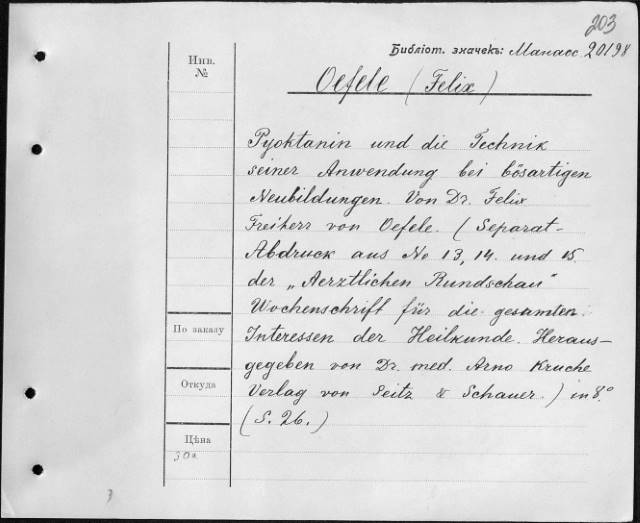 203
Библіот. значекъ: Манасс. 20198
Инв.
№
Oefele (Felix)
Pyoktanin und die Technik
seiner Anwendung bei bösartigen
Neubildungen. Von Dr. Felix
Freiherr von Oefele. (Separat-
Abdruck aus No 13, 14. und 15.
der „Aerztlichen Rundschau"
Wochenschrift für die gesamten
Interessen der Heilkunde. Heraus-
gegeben von Dr. med. Arno Kruche
Verlag von Seitz & Schauer.) in 8.°
(S. 26.)
По заказу
Откуда
Цѣна